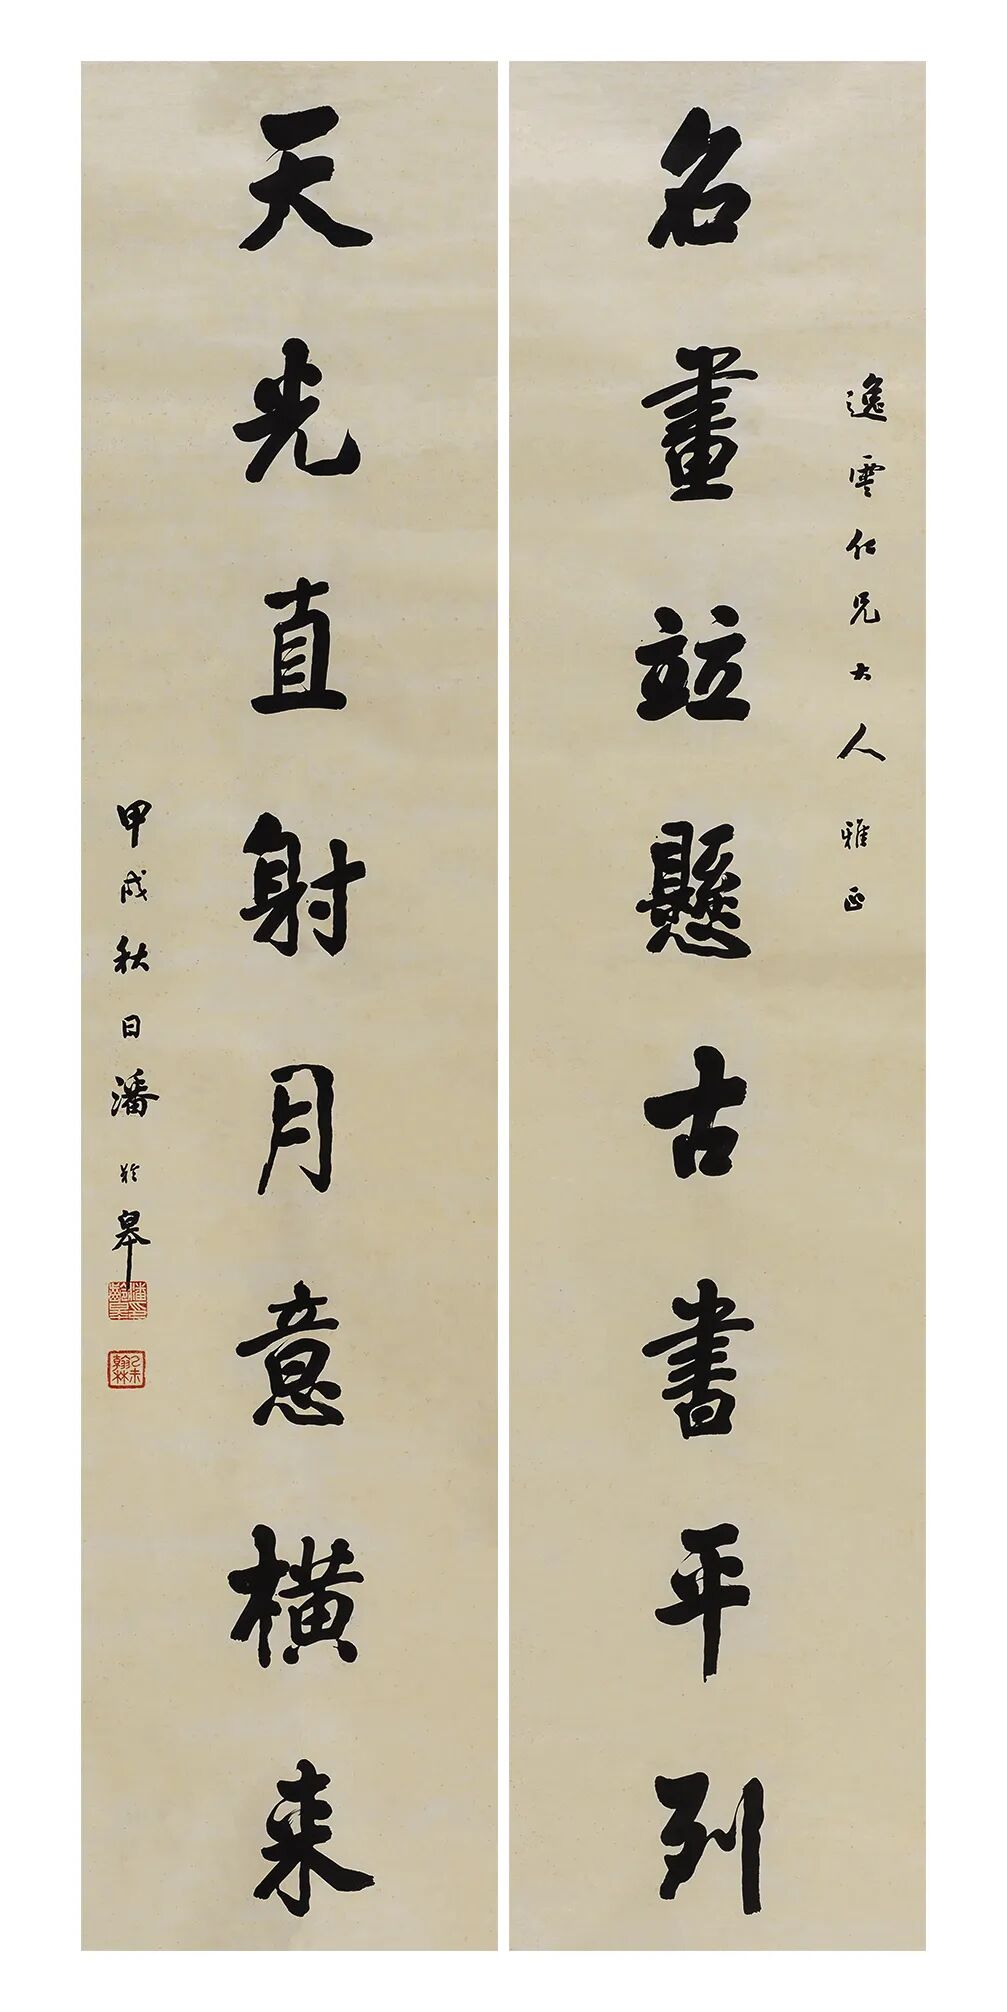 逸雲仁兄大人雅正
名畫竝懸古書平列
天光直射月意橫来
甲戌秋日潘龄皋
己未翰林